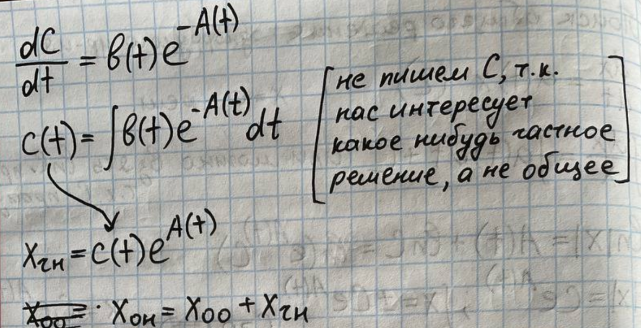 dC/dt = b(t)e^-A(t)
C(t) = ∫b(t)e^-A(t) dt
[не пишем C, т.к.
нас интересует
какое нибудь частное
решение, а не общее]
Xчн = C(t)e^A(t)
Xон = Xоо + Xчн